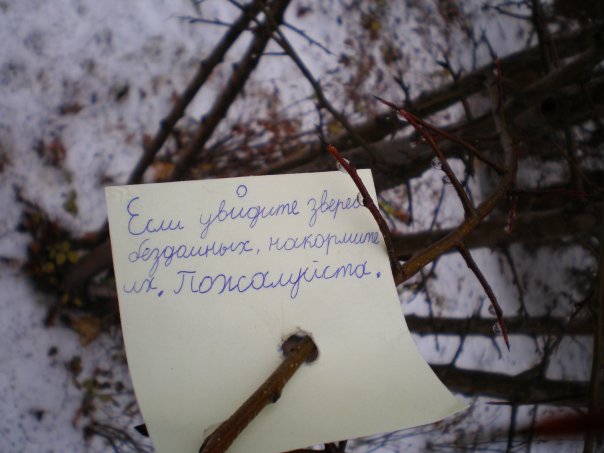 Если увидите зверей
бездомных, накормите
их. Пожалуйста.